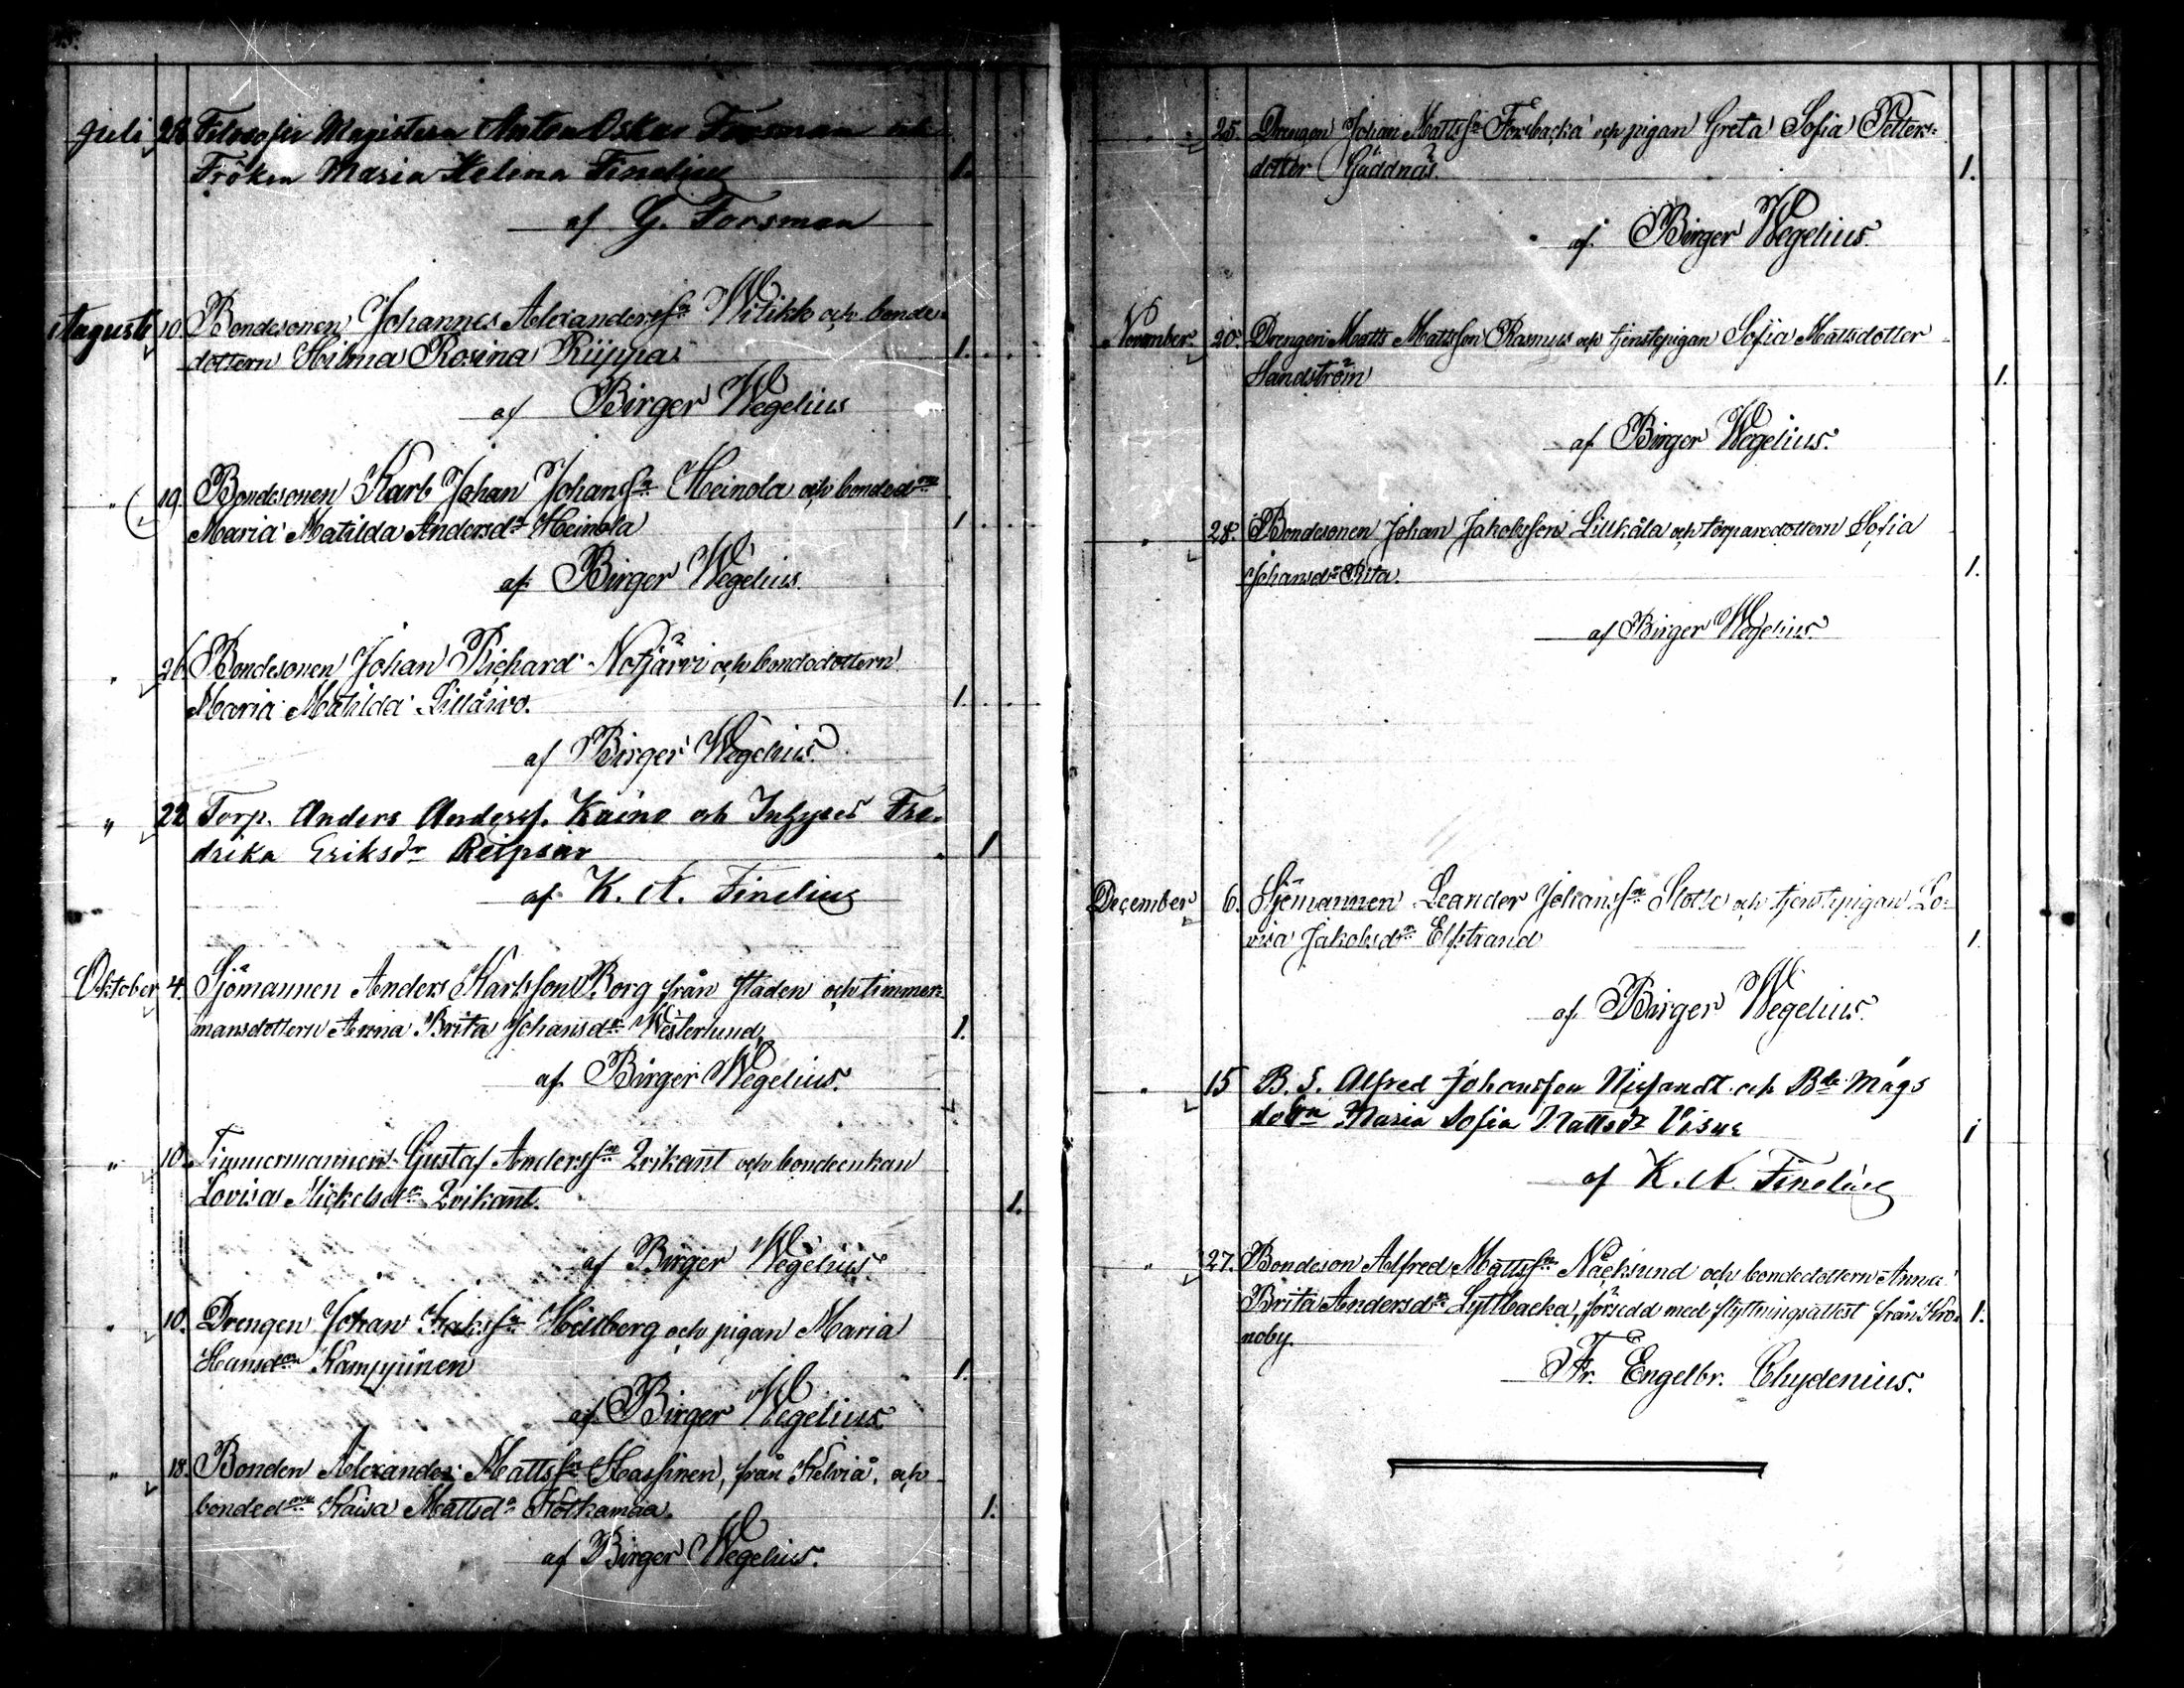 Juli 28. Filosofie Magistern Anton Oskar Forsman och
Fröken Maria Helena Finelius 1.
af G. Forsman
Augusti 10. Bondesonen Johannes Alexandersson Witikk och bonde-
dottern Hilma Rosina Riippa 1.
af Birger Wegelius
" 19. Bondesonen Karl Johan Johansson Heinola och bonded:n
Maria Matilda Andersd:r Heinola 1
af Birger Wegelius.
" 26. Bondesonen Johan Richard Notjärvi och bondedottern
Maria Matilda 1.
af Birger Wegelius.
" 22 Torp. Anders Anderss. Kaino och Inhyses Fre-
drika Eriksdr 1
af K. A. Finelius
Oktober 4. Sjömannen Anders Karlsson Borg från staden och timmer-
mansdottern Anna Brita Johansd:r Westerlund, 1.
af Birger Wegelius.
" 10. Timmermannen Gustaf Andersson Qvikant och bondeenkan
Lovisa Mickelsd:r Qvikant. 1.
af Birger Wegelius.
" 10. Drengen Johan Hellberg och pigan Maria
Hansd:r Kamppinen 1.
af Birger Wegelius.
" 18. Bonden Alexander Mattsson Hassinen, från Kelviå, och
bonded:n Kaisa Mattsd:r Kotkamaa. 1.
af Birger Wegelius.
" 25. Drengen Johan Mattsson Forsbacka och pigan Greta Sofia Petters-
dotter Gäddnäs. 1.
af Birger Wegelius.
November 20. Drengen Matts Mattsson Rasmus och tjenstepigan Sofia Mattsdotter
Sandström 1.
af Birger Wegelius.
" 28. Bondesonen Johan Jakobsson Lillkåla och torparedottern Sofia
Johansd:r Rita. 1.
af Birger Wegelius.
December 6. Sjömannen Leander Johansson Slotte och tjenstepigan Lo-
visa Jakobsd:r Elfstrand 1.
af Birger Wegelius.
" 15 B. S. Alfred Johansson Nissandt och Bde Mågs
Maria Sofia Mattsdr 1
af K. A. Finelius
" 27. Bondeson Alfred Mattsson Näcksund och bondedottern Anna
Brita Andersd:r Lyttbacka, försedd med flyttningsattest från Kro- 1.
noby.
Fr. Engelbr. Chydenius.